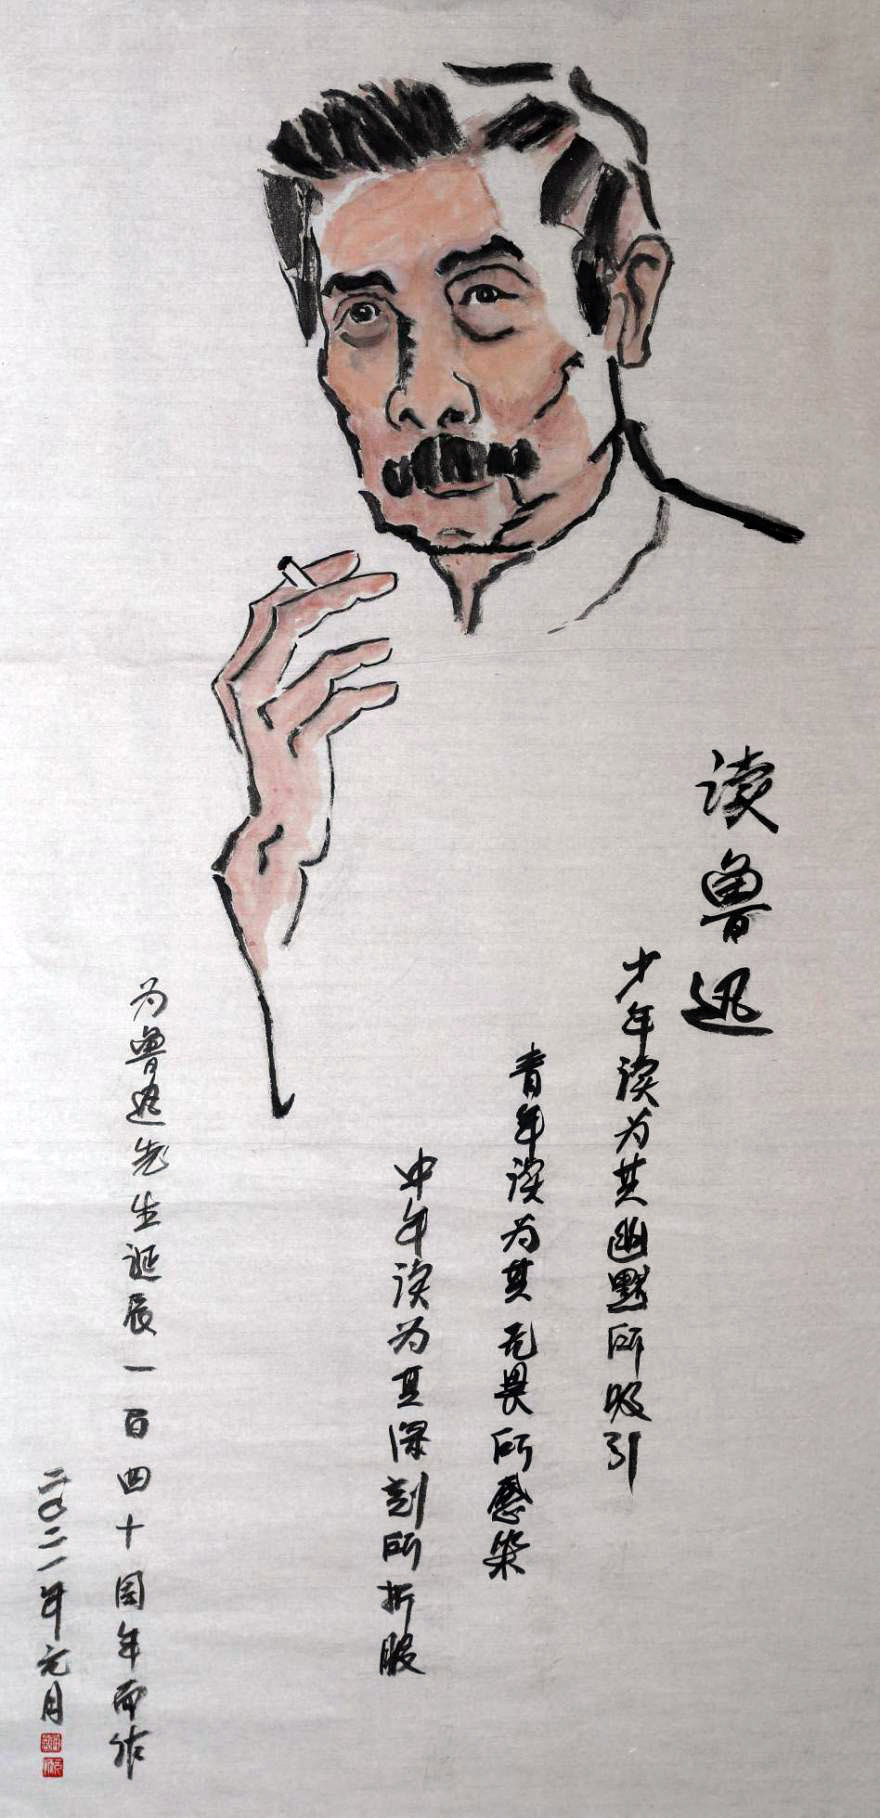 读鲁迅
少年读为其幽默所吸引
青年读为其无畏所感染
中年读为其深刻所折服
为鲁迅先生诞辰一百四十周年而作
二〇二一年元月